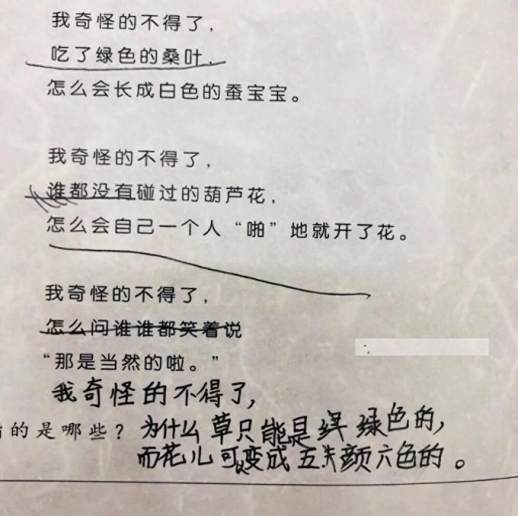 我奇怪的不得了，
吃了绿色的桑叶，
怎么会长成白色的蚕宝宝。
我奇怪的不得了，
谁都没有碰过的葫芦花，
怎么会自己一个人“啪”地就开了花。
我奇怪的不得了，
怎么问谁谁都笑着说
“那是当然的啦。”
我奇怪的不得了，
的是哪些？为什么草只能是绿色的，
而花儿可以变成五颜六色的。